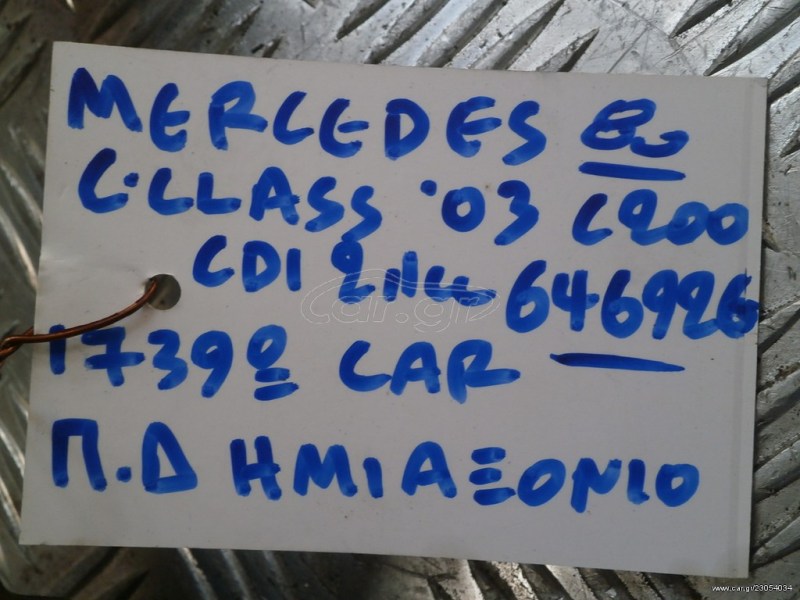 MERCEDES
C.CLASS '03 C200
CDI 646926
1739º CAR
Π.Δ ΗΜΙΑΞΟΝΙΟ
car.gr
www.car.gr/23054034